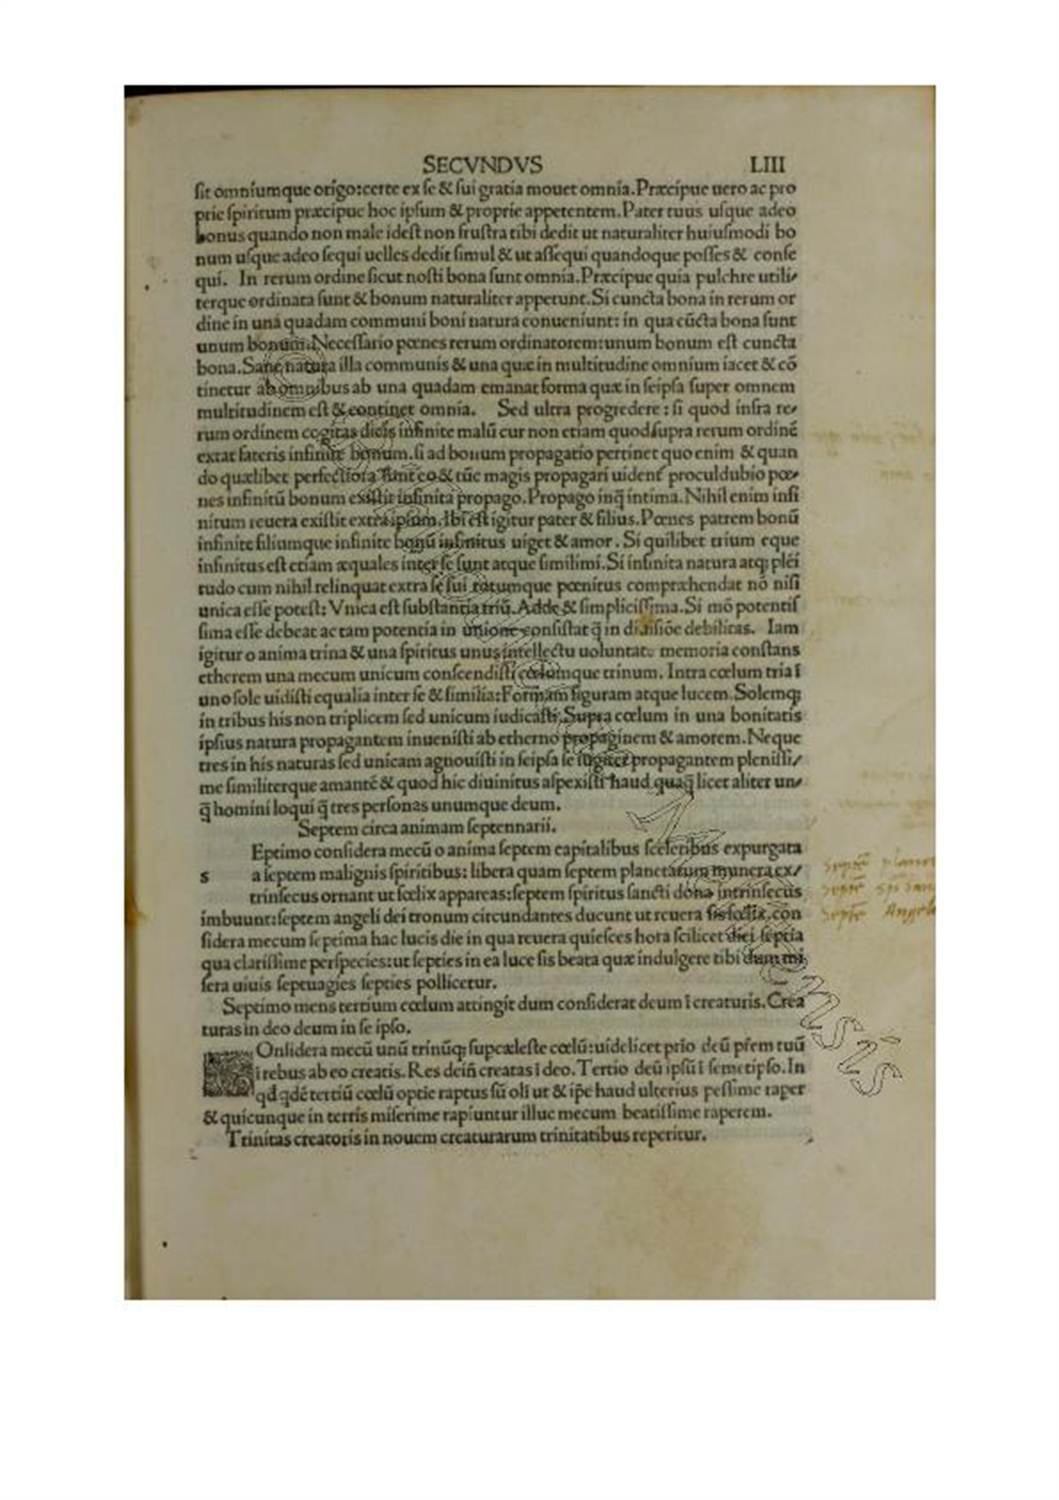 SECVNDVS LIII
sit omniumque origo:certe ex se & sui gratia mouet omnia.Præcipue uero ac pro
prie spiritum præcipue hoc ipsum & proprie appetentem.Pater tuus usque adeo
bonus quando non male idest non frustra tibi dedit ut naturaliter huiusmodi bo
num usque adeo sequi uelles dedit simul & ut assequi quandoque posses & conse
qui. In rerum ordine sicut nosti bona sunt omnia.Præcipue quia pulchre utili/
terque ordinata sunt & bonum naturaliter appetunt.Si cuncta bona in rerum or
dine in una quadam communi boni natura conueniunt: in qua cūcta bona sunt
unum bonum.Necessario pœnes rerum ordinatorem:unum bonum est cuncta
bona.Sane natura illa communis & una quæ in multitudine omnium iacet & cō
tinetur ab omnibus ab una quadam emanat forma quæ in seipsa super omnem
multitudinem est & continet omnia. Sed ultra progredere : si quod infra re/
rum ordinem cogitas dicis infinite malū cur non etiam quod supra rerum ordinē
extat fateris infinite bonum.si ad bonum propagatio pertinet quo enim & quan
do quælibet perfectiora sunt eo & tūc magis propagari uident proculdubio pœ/
nes infinitū bonum existit infinita propago.Propago inq̄ intima.Nihil enim infi
nitum reuera existit extra ipsum.Ibi est igitur pater & filius.Pœnes patrem bonū
infinite filiumque infinite bonū infinitus uiget & amor. Si quilibet trium eque
infinitus est etiam æquales inter se sunt atque simillimi.Si infinita natura atq; plēi
tudo cum nihil relinquat extra se sui totumque pœnitus compræhendat nō nisi
unica esse potest: Vnica est substantia triū.Adde & simplicissima.Si mō potentis
sima esse debeat ac tam potentia in unione consistat q̄ in diuisiōe debilitas. Iam
igitur o anima trina & una spiritus unus intellectu uoluntate memoria constans
etherem una mecum unicum conscendisti cœlumque trinum. Intra cœlum tria ī
uno sole uidisti equalia inter se & similia:Formam figuram atque lucem.Solemq;
in tribus his non triplicem sed unicum iudicasti.Supra cœlum in una bonitatis
ipsius natura propagantem inuenisti ab etherno propaginem & amorem.Neque
tres in his naturas sed unicam agnouisti in seipsa se iugiter propagantem plenissi/
me similiterque amantē & quod hic diuinitus aspexisti haud quaq̄ licet aliter un/
q̄ homini loqui q̄ tres personas unumque deum.
Septem circa animam septennarii.
Eptimo considera mecū o anima septem capitalibus sceleribus expurgata
s a septem malignis spiritibus: libera quam septem planetarum munera ex/
trinsecus ornant ut fœlix appareas:septem spiritus sancti dona intrinsecus
imbuunt:septem angeli dei tronum circundantes ducunt ut reuera sis fœlix.con
sidera mecum septima hac lucis die in qua reuera quiesces hora scilicet diei septia
qua clarissime perspecies:ut septies in ea luce sis beata quæ indulgere tibi dum mi
sera uiuis septuagies septies pollicetur.
Septimo mens tertium cœlum attingit dum considerat deum ī creaturis.Crea
turas in deo deum in se ipso.
Onsidera mecū unū trinūq; supcæleste cœlū:uidelicet prio deū pr̄em tuū
i rebus ab eo creatis. Res dein̄ creatas ī deo. Tertio deū ipsū ī semetipso. In
qd qdē tertiū cœlū optie raptus sū oli ut & ip̄e haud ulterius pessime raper
& quicunque in terris miserime rapiuntur illuc mecum beatissime raperem.
Trinitas creatoris in nouem creaturarum trinitatibus reperitur.